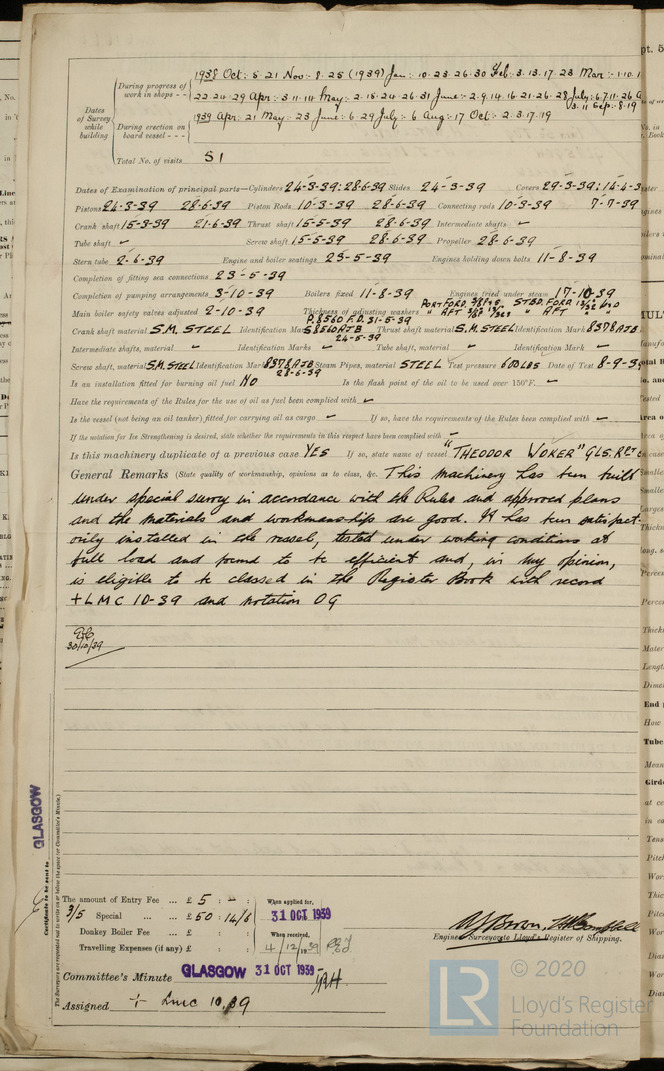 1938 Oct: 5·21 Nov: 8·25 (1939) Jan: 10·23·26·30 Feb: 3·13·17·23 Mar: 1·10·1
During progress of work in shops - -
22·24·29 Apr: 3·11·14 May: 2·15·24·26·31 June: 2·9·14·16·21·26·28 July: 6·7·11·26 A
3·11 Sep: 8·19
Dates of Survey while building
During erection on board vessel - - -
1939 Apr: 21 May: 23 June: 6·29 July: 6 Aug: 17 Oct: 2·3·17·19
Total No. of visits 51
Dates of Examination of principal parts—Cylinders 24-3-39: 28-6-39 Slides 24-3-39 Covers 29-3-39: 14-4-3
Pistons 24-3-39 28-6-39 Piston Rods 10-3-39 28-6-39 Connecting rods 10-3-39 7-7-39
Crank shaft 15-3-39 21-6-39 Thrust shaft 15-5-39 28-6-39 Intermediate shafts –
Tube shaft – Screw shaft 15-5-39 28-6-39 Propeller 28-6-39
Stern tube 2-6-39 Engine and boiler seatings 23-5-39 Engines holding down bolts 11-8-39
Completion of fitting sea connections 23-5-39
Completion of pumping arrangements 3-10-39 Boilers fixed 11-8-39 Engines tried under steam 17-10-39
Main boiler safety valves adjusted 2-10-39 Thickness of adjusting washers PORT FORD. STBD. FORD
AFT AFT
P.8560 F.D. 31-5-39
Crank shaft material S.M. STEEL Identification Mark S8560AJB Thrust shaft material S.M. STEEL Identification Mark 8378AJB
24-5-39
Intermediate shafts, material – Identification Marks – Tube shaft, material – Identification Mark –
Screw shaft, material S.M. STEEL Identification Mark 8378AJB Steam Pipes, material STEEL Test pressure 600 LBS Date of Test 8-9-39
28-6-39
Is an installation fitted for burning oil fuel NO Is the flash point of the oil to be used over 150°F. –
Have the requirements of the Rules for the use of oil as fuel been complied with –
Is the vessel (not being an oil tanker) fitted for carrying oil as cargo – If so, have the requirements of the Rules been complied with –
If the notation for Ice Strengthening is desired, state whether the requirements in this respect have been complied with –
Is this machinery duplicate of a previous case YES If so, state name of vessel "THEODOR WOKER" GLS. RPT
General Remarks (State quality of workmanship, opinions as to class, &c. This machinery has been built
under special survey in accordance with the Rules and approved plans
and the materials and workmanship are good. It has been satisfact-
orily installed in the vessel, tested under working conditions at
full load and found to be efficient and, in my opinion,
is eligible to be classed in the Register Book with record
+LMC 10-39 and notation OG
30/10/39
GLASGOW
Certificate to be sent to
The amount of Entry Fee ... £ 5 : – : When applied for,
3/5 Special ... £ 50 : 14/6 31 OCT 1939
Donkey Boiler Fee ... £ : : When received,
Travelling Expenses (if any) £ : : 4/12/1939
Engineer Surveyor to Lloyd's Register of Shipping.
Committee's Minute GLASGOW 31 OCT 1939
Assigned + LMC 10.39
LR © 2020
Lloyd's Register
Foundation